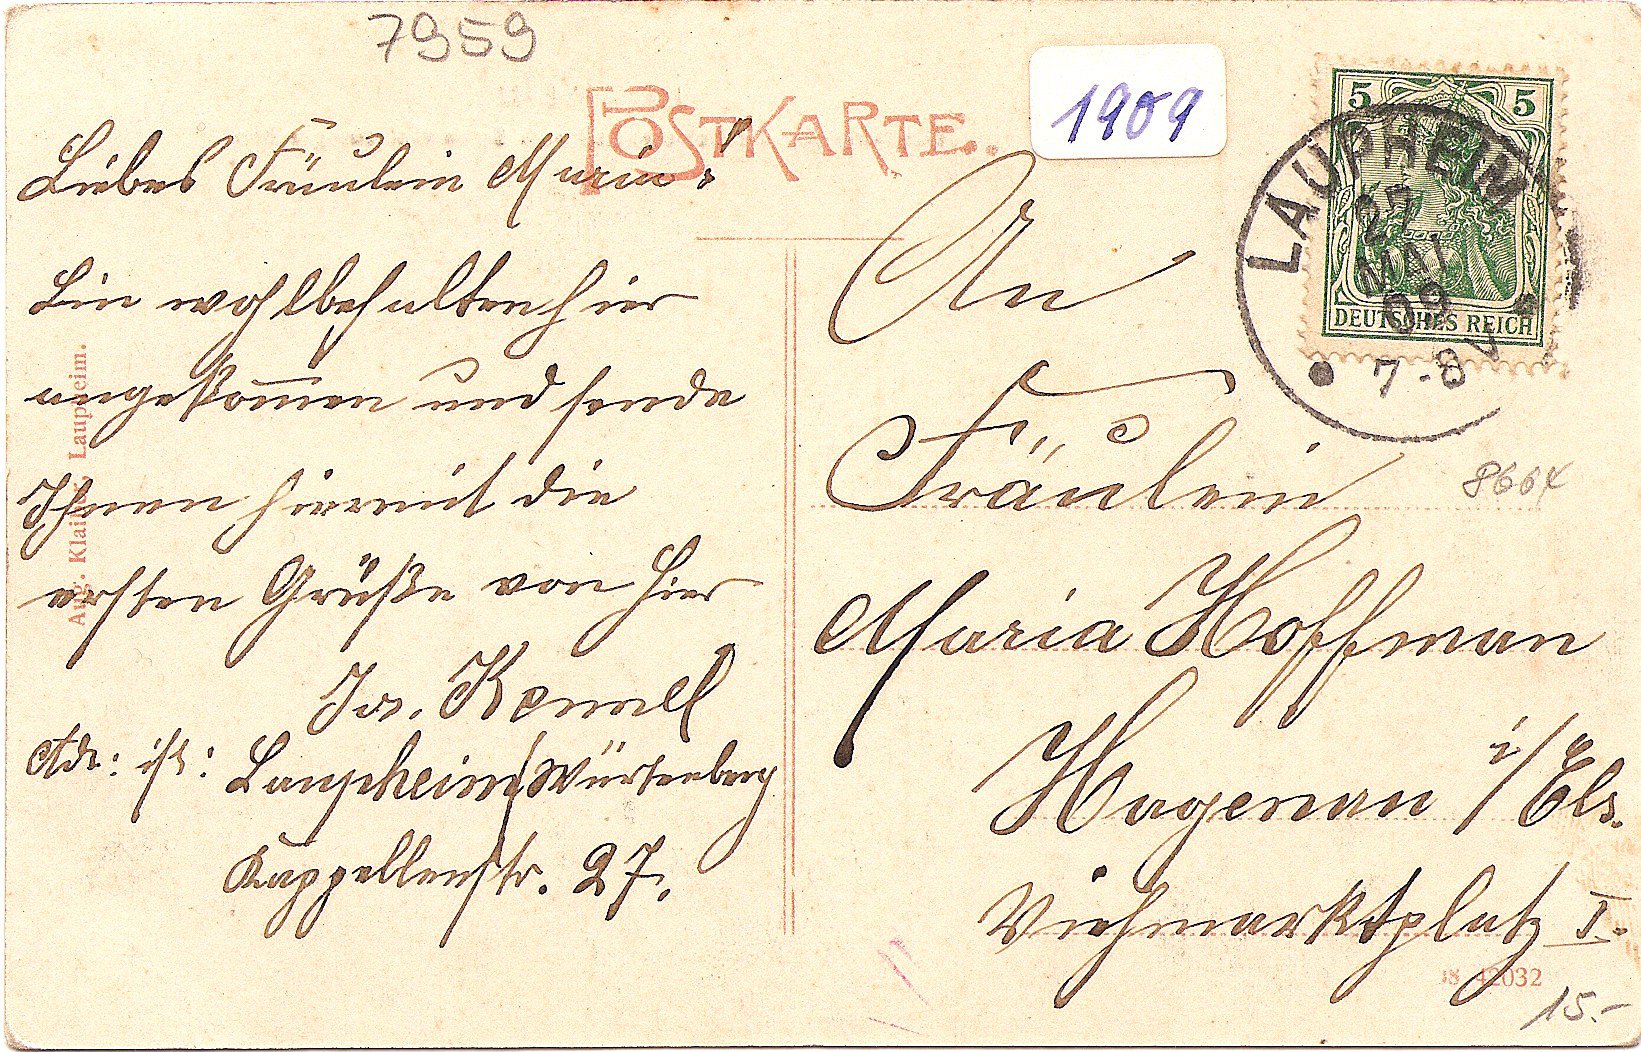 7959
POSTKARTE.
1909
5 5
DEUTSCHES REICH
LAUPHEIM
27
MAI
09
7-8V
Liebes Fräulein Maria!
Bin wohlbehalten hier
angekommen und sende
Ihnen hiermit die
ersten Grüße von hier
Kemmel
Adr: ist: Laupheim/Würtenberg
Kappellenstr. 27.
An
Fräulein
Maria Hoffman
Hagenau i/Els.
Viehmarktplatz I.
8664
Aug. Laupheim.
42032
15.-